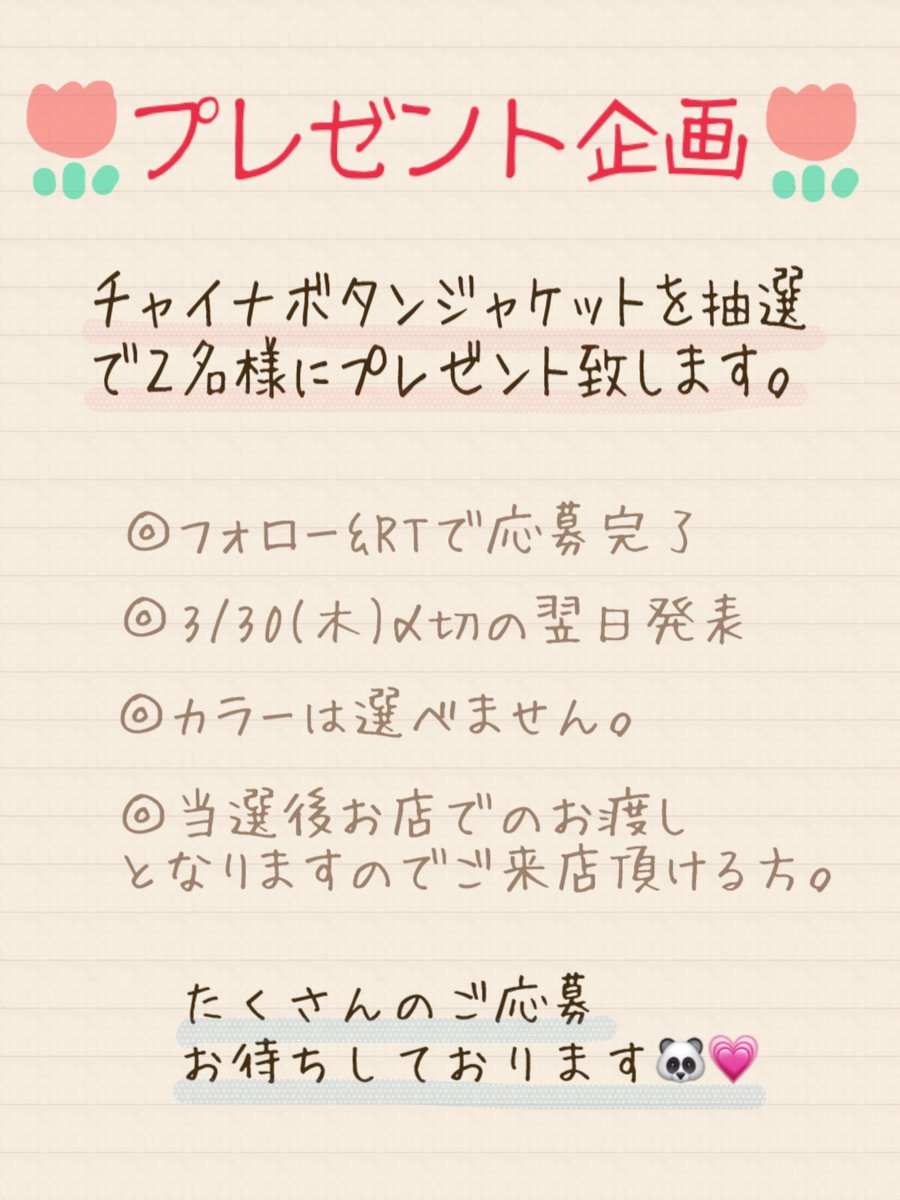 プレゼント企画
チャイナボタンジャケットを抽選
で2名様にプレゼント致します。
◎フォロー&RTで応募完了
◎3/30(木)〆切の翌日発表
◎カラーは選べません。
◎当選後お店でのお渡し
となりますのでご来店頂ける方。
たくさんのご応募
お待ちしております🐼💗